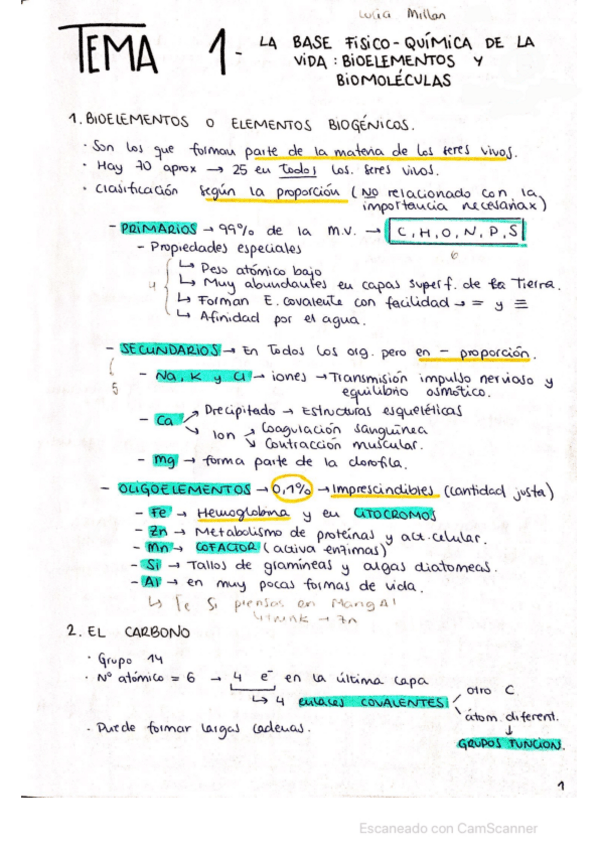 Lucía Millán
TEMA 1- LA BASE FíSICO-QUíMICA DE LA
VIDA: BIOELEMENTOS Y
BIOMOLÉCULAS
1. BIOELEMENTOS O ELEMENTOS BIOGÉNICOS.
· Son los que forman parte de la materia de los seres vivos.
· Hay 70 aprox → 25 en todos los seres vivos.
· Clasificación según la proporción (NO relacionado con la
importancia necesariax)
- PRIMARIOS → 99% de la m.v. → C, H, O, N, P, S
- Propiedades especiales
6
↳ Peso atómico bajo
4 ↳ Muy abundantes en capas superf. de la Tierra.
↳ Forman E. covalente con facilidad → = y ≡
↳ Afinidad por el agua.
- SECUNDARIOS → En todos los org. pero en - proporción.
5
- Na, K y Cl → iones → Transmisión impulso nervioso y
equilibrio osmótico.
- Ca Precipitado → Estructuras esqueléticas
Ion Coagulación sanguínea
Contracción muscular.
- Mg → forma parte de la clorofila.
- OLIGOELEMENTOS → 0,1% → Imprescindibles (cantidad justa)
- Fe → Hemoglobina y en CITOCROMOS
- Zn → Metabolismo de proteínas y act. celular.
- Mn → COFACTOR (activa enzimas)
- Si → Tallos de gramíneas y algas diatomeas.
- Al → en muy pocas formas de vida.
↳ Fe Si piensas en MangAl
→ Zn
2. EL CARBONO
· Grupo 14
· Nº atómico = 6 → 4 e⁻ en la última capa
↳ 4 enlaces COVALENTES otro C
átom. diferent.
↓
· Puede formar largas cadenas.
GRUPOS FUNCION.
1
Escaneado con CamScanner